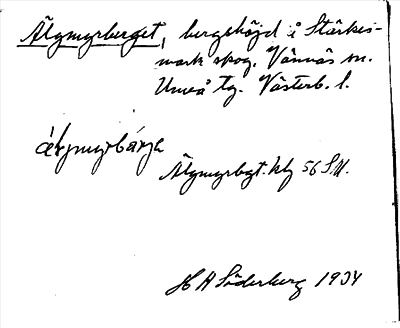 Älgmyrberget, bergshöjd å Stärkes-
mark skog, Vännäs sn.
Umeå tg. Västerb. l.
älgmyrbärje
Älgmyrbgt. kbg 56 S.V.
H A Söderberg 1934